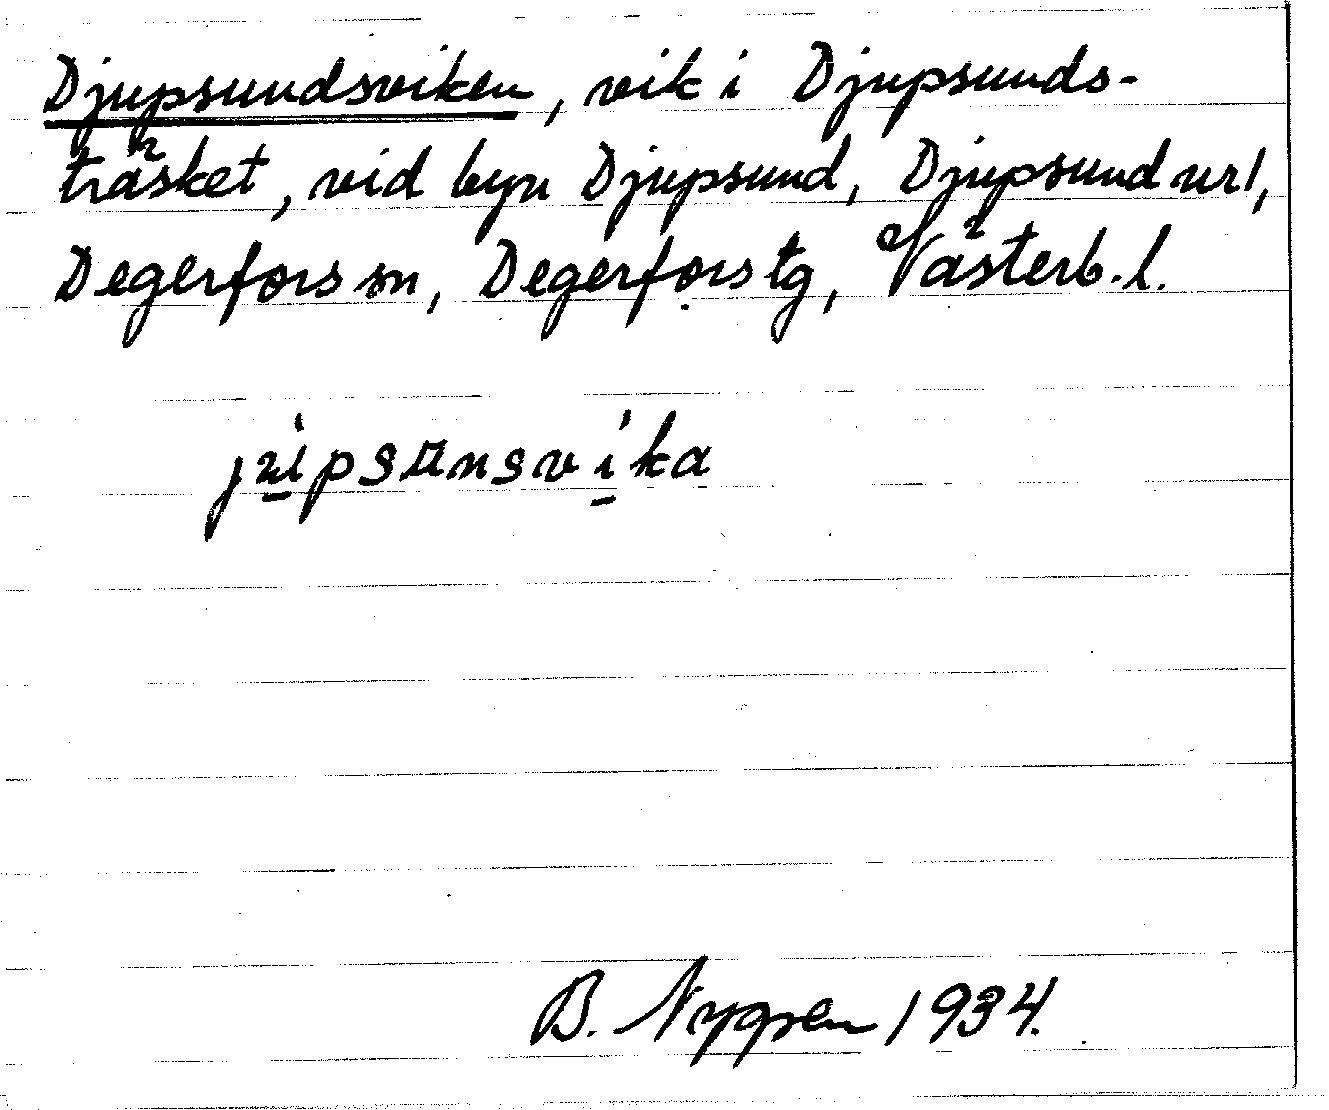 Djupsundsviken, vik i Djupsunds-
träsket, vid byn Djupsund, Djupsund nr 1,
Degerfors sn, Degerfors tg, Västerb. l.
B. Nygren 1934.